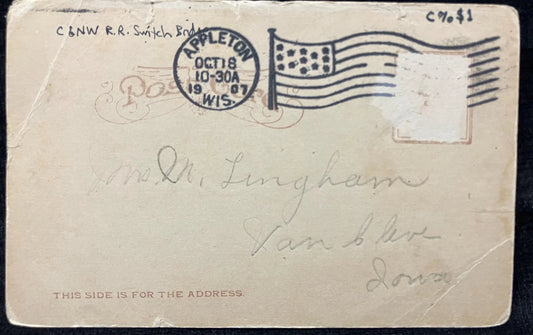 C&NW R.R. Switch Bridge
C%$1
APPLETON
OCT 18
10-30A
1907
WIS.
Post Card
M. Lingham
Van Cleve
Iowa
THIS SIDE IS FOR THE ADDRESS.